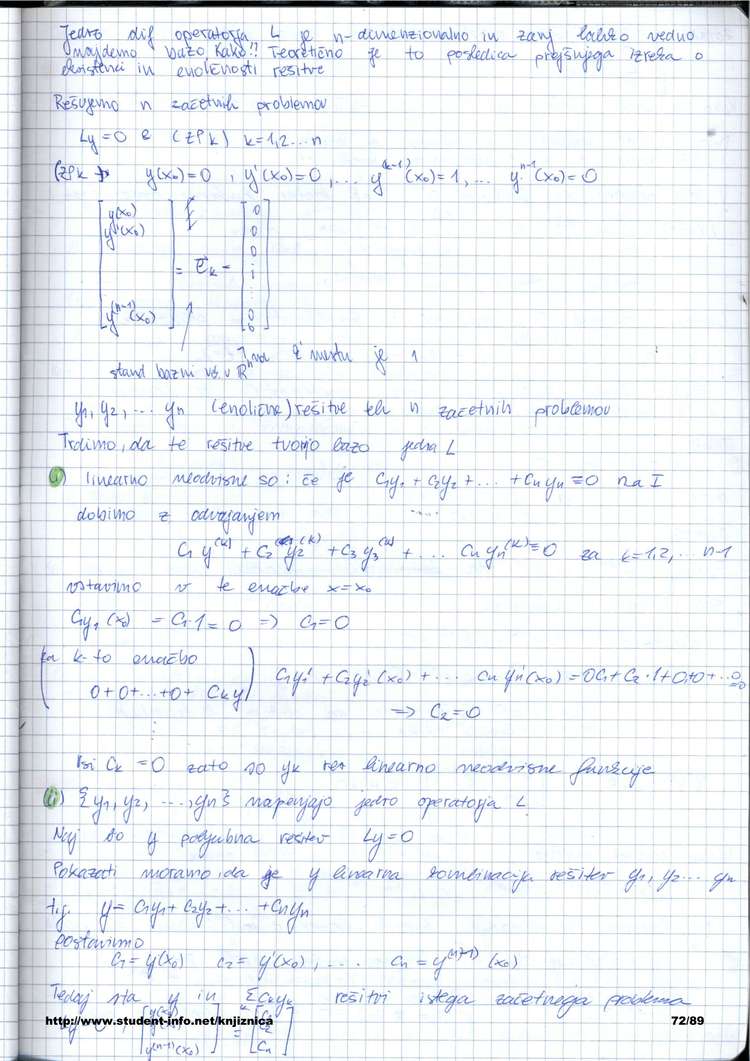 Jedro dif operatorja L je n-dimenzionalno in zanj lahko vedno
najdemo bazo. Kako!! Teoretično je to posledica prejšnjega izreka o
eksistenci in enoličnosti rešitve
Rešujemo n začetnih problemov
Ly=0 (ZPk) k=1,2...n
(ZPk y(x₀)=0, y'(x₀)=0, ... y^(k-1)(x₀)=1, ... y^(n-1)(x₀)=0
[y(x₀) y'(x₀) y^(n-1)(x₀)] = e⃗k = [0 0 0 1 ... 0 0]
na k mestu je 1
stand bazni v. v ℝⁿ
y₁, y₂, ... yn (enolične) rešitve teh n začetnih problemov
Trdimo, da te rešitve tvorijo bazo jedra L
i) linearno neodvisne so: če je C₁y₁ + C₂y₂ + ... + Cnyn ≡ 0 na I
dobimo z odvajanjem
C₁y^(k) + C₂y₂^(k) + C₃y₃^(k) + ... Cnyn^(k) = 0 za k=1,2,.. n-1
vstavimo v te enačbe x=x₀
C₁y₁(x₀) = C₁·1 = 0 => C₁=0
za k-to enačbo
0+0+...+0+ Cky
C₁y₁' + C₂y₂'(x₀) + ... Cnyn'(x₀) = 0C₁+C₂·1+0+0+...0
=> C₂=0
Vsi Ck=0 zato so yk res linearno neodvisne funkcije
ii) {y₁, y₂, ..., yn} napenjajo jedro operatorja L.
Naj bo y poljubna rešitev Ly=0
Pokazati moramo, da je y linearna kombinacija rešitev y₁, y₂... yn
t.j. y = C₁y₁+C₂y₂+...+Cnyn
postavimo
C₁=y(x₀) C₂=y'(x₀), ... Cn=y^(n-1)(x₀)
Tedaj sta y in ΣCkyk rešitvi istega začetnega problema
y^(n-1)(x₀)] = [C₁ C₂ Cn]
http://www.student-info.net/knjiznica 72/89